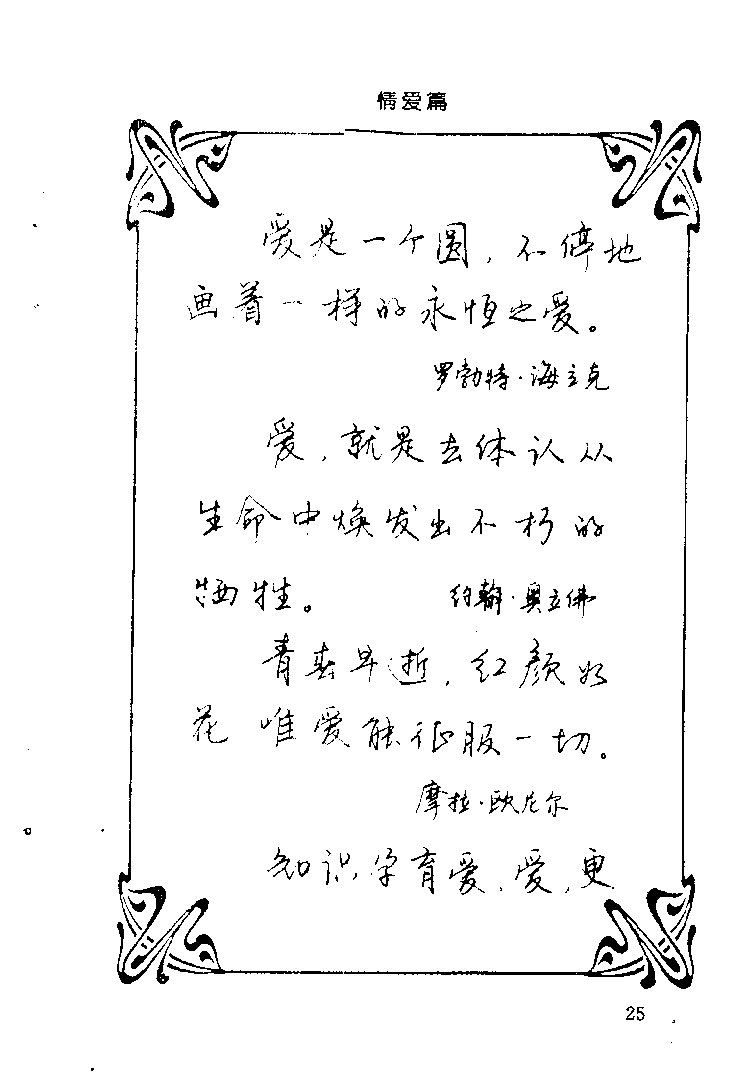 情爱篇
爱是一个圆，不停地
画着一样的永恒之爱。
罗勃特·海立克
爱，就是去体认从
生命中焕发出不朽的
牺牲。 约翰·奥立佛
青春早逝，红颜如
花 唯爱能征服一切。
摩拉·欧尼尔
知识孕育爱，爱，更
25